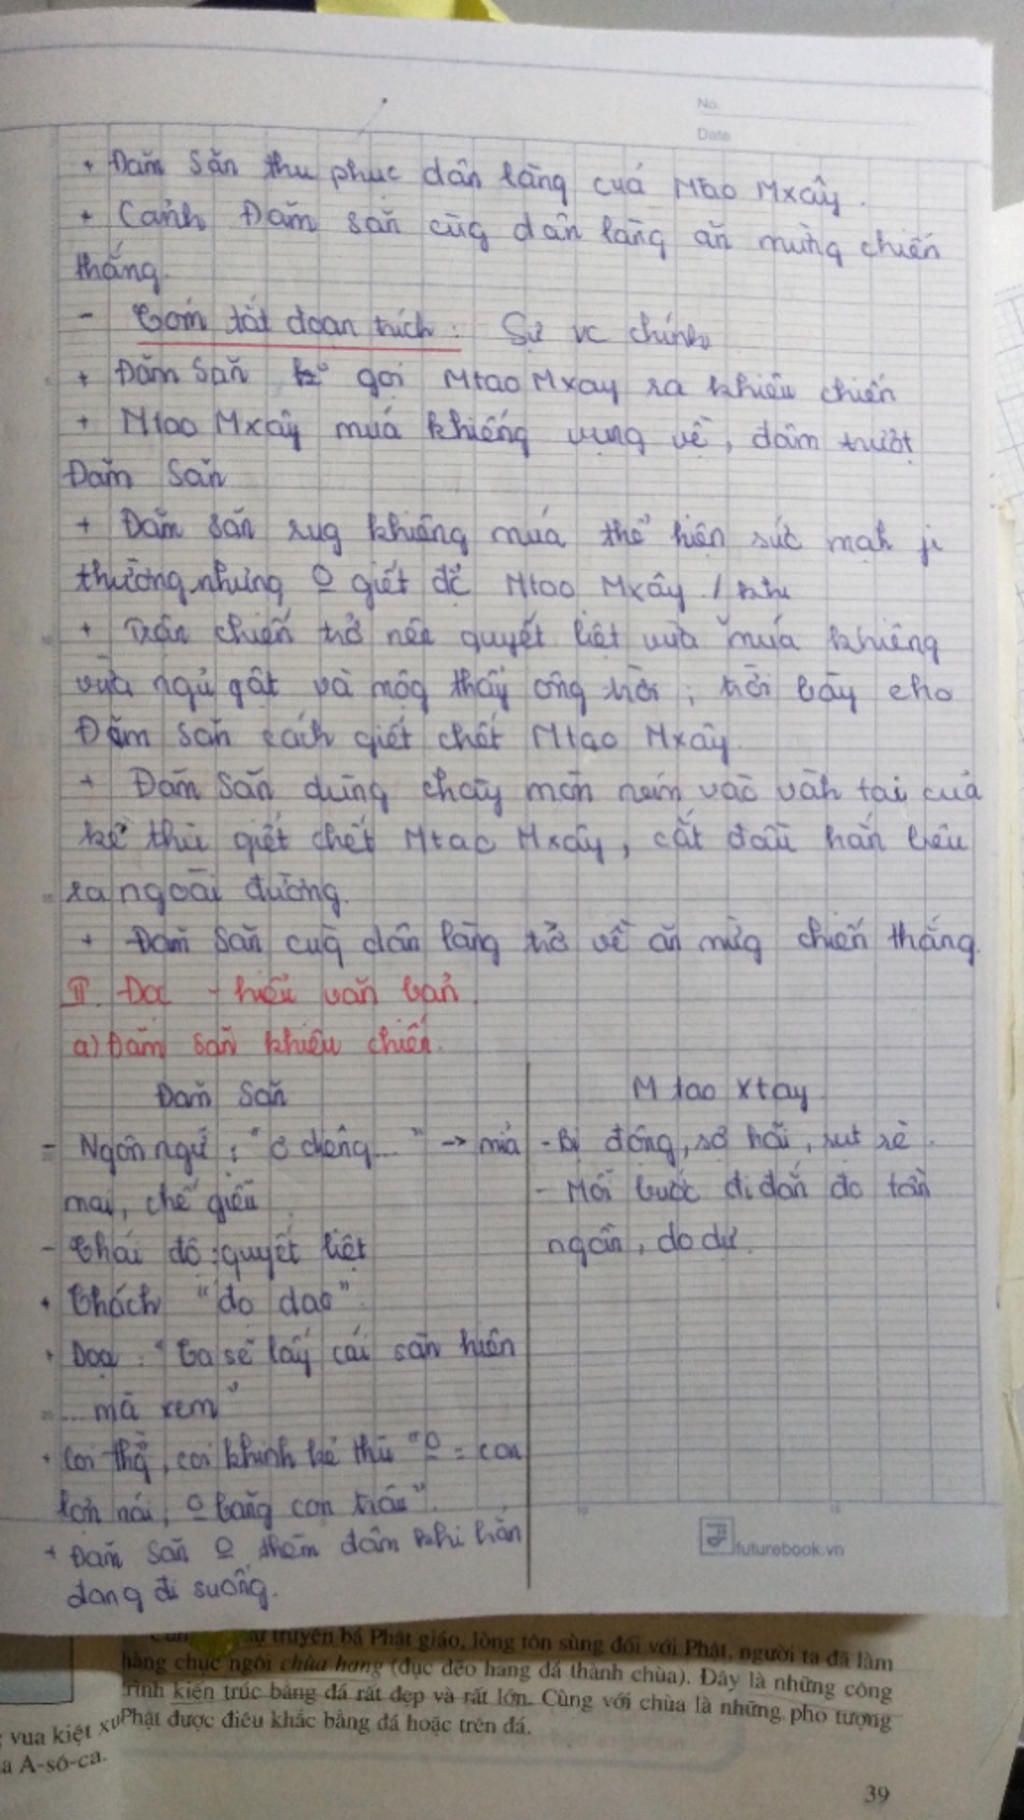 No.
Date
+ Đăm Săn thu phục dân làng của Mtao Mxây.
+ Cảnh Đăm săn cùg dân làng ăn mừng chiến
thắng.
- Tóm tắt đoạn trích: Sự vc chính
+ Đăm Săn gọi Mtao Mxay ra khiêu chiến
+ Mtao Mxây múa khiêng vụng về, đâm trượt
Đăm Săn
+ Đăm săn rug khiêng múa thể hiện sức mạh
thường nhưng o giết đc Mtao Mxây
+ Trận chiến trở nên quyết liệt vừa múa khiêng
vừa ngủ gật và mộg thấy ông trời, trời bày cho
Đăm Săn cách giết chết Mtao Mxây.
+ Đăm Săn dùng chày mòn ném vào vành tai của
kẻ thù giết chết Mtao Mxây, cắt đầu hắn bêu
ra ngoài đường.
+ Đăm Săn cùg dân làng trở về ăn mừg chiến thắng.
II. Đọc - hiểu văn bản.
a) Đăm săn khiêu chiến.
Đăm Săn
M tao xtay
- Ngôn ngữ: "ơ diêng..." → mỉa
mai, chế giễu
- Thái độ: quyết liệt
+ Thách "đo dao"
+ Dọa: "Ta sẽ lấy cái sàn hiên
...mà xem"
+ Coi thg, coi khinh kẻ thù "o = con
lợn nái, o bằng con trâu".
+ Đăm Săn o thèm đâm khi hắn
đang đi xuống.
- Bị động, sợ hãi, rụt rè.
- Mỗi bước đi đắn đo tần
ngần, do dự.
futurebook.vn
sự truyền bá Phật giáo, lòng tôn sùng đối với Phật, người ta đã làm
hàng chục ngôi chùa hang (đục đẽo hang đá thành chùa). Đây là những công
trình kiến trúc bằng đá rất đẹp và rất lớn. Cùng với chùa là những pho tượng
Phật được điêu khắc bằng đá hoặc trên đá.
vua kiệt
a A-sô-ca.
39